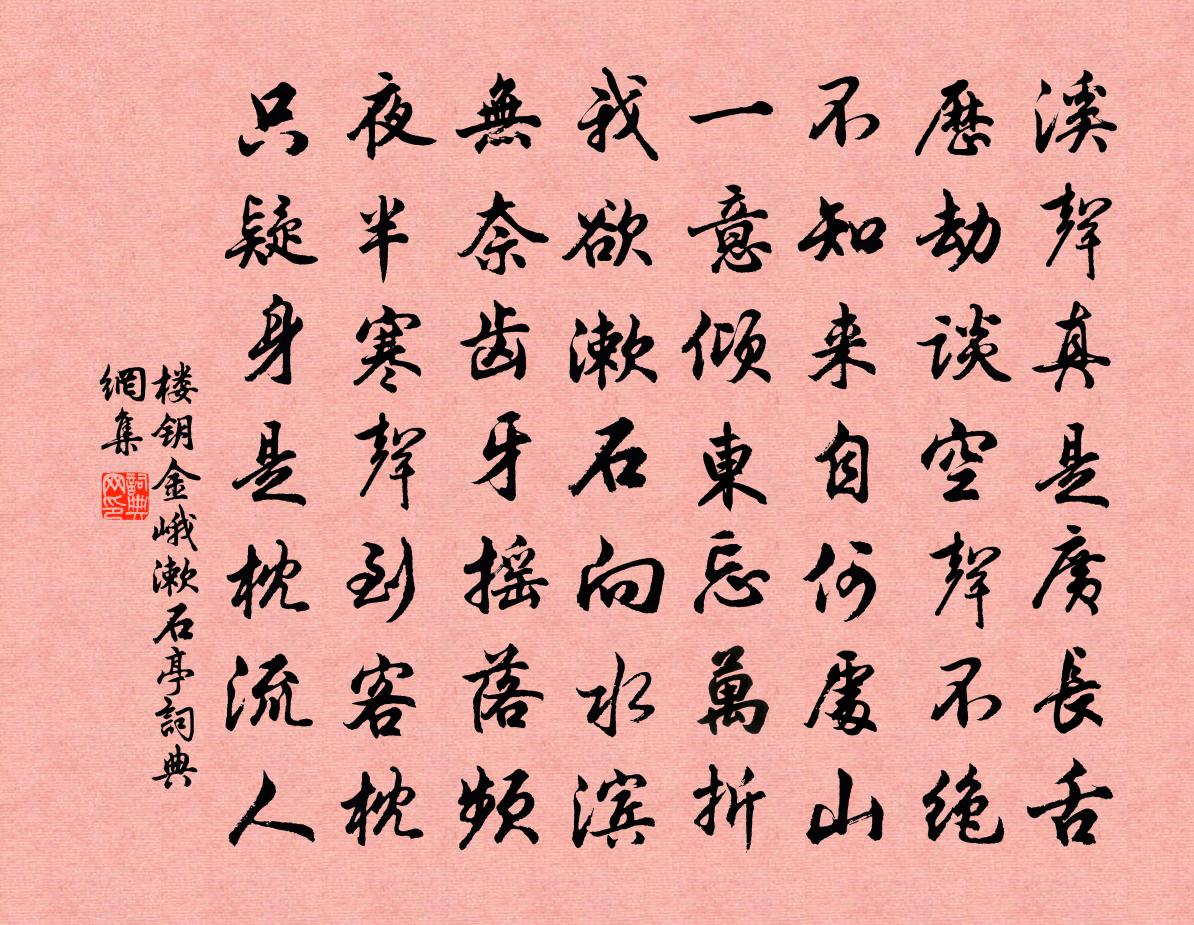 溪聲真是廣長舌
歷劫談空聲不绝
不知来自何處山
一意倾東忘萬折
我欲漱石向水滨
無奈齿牙摇落频
夜半寒聲到客枕
只疑身是枕流人
楼钥金峨漱石亭詞典
網集
詞典
网印